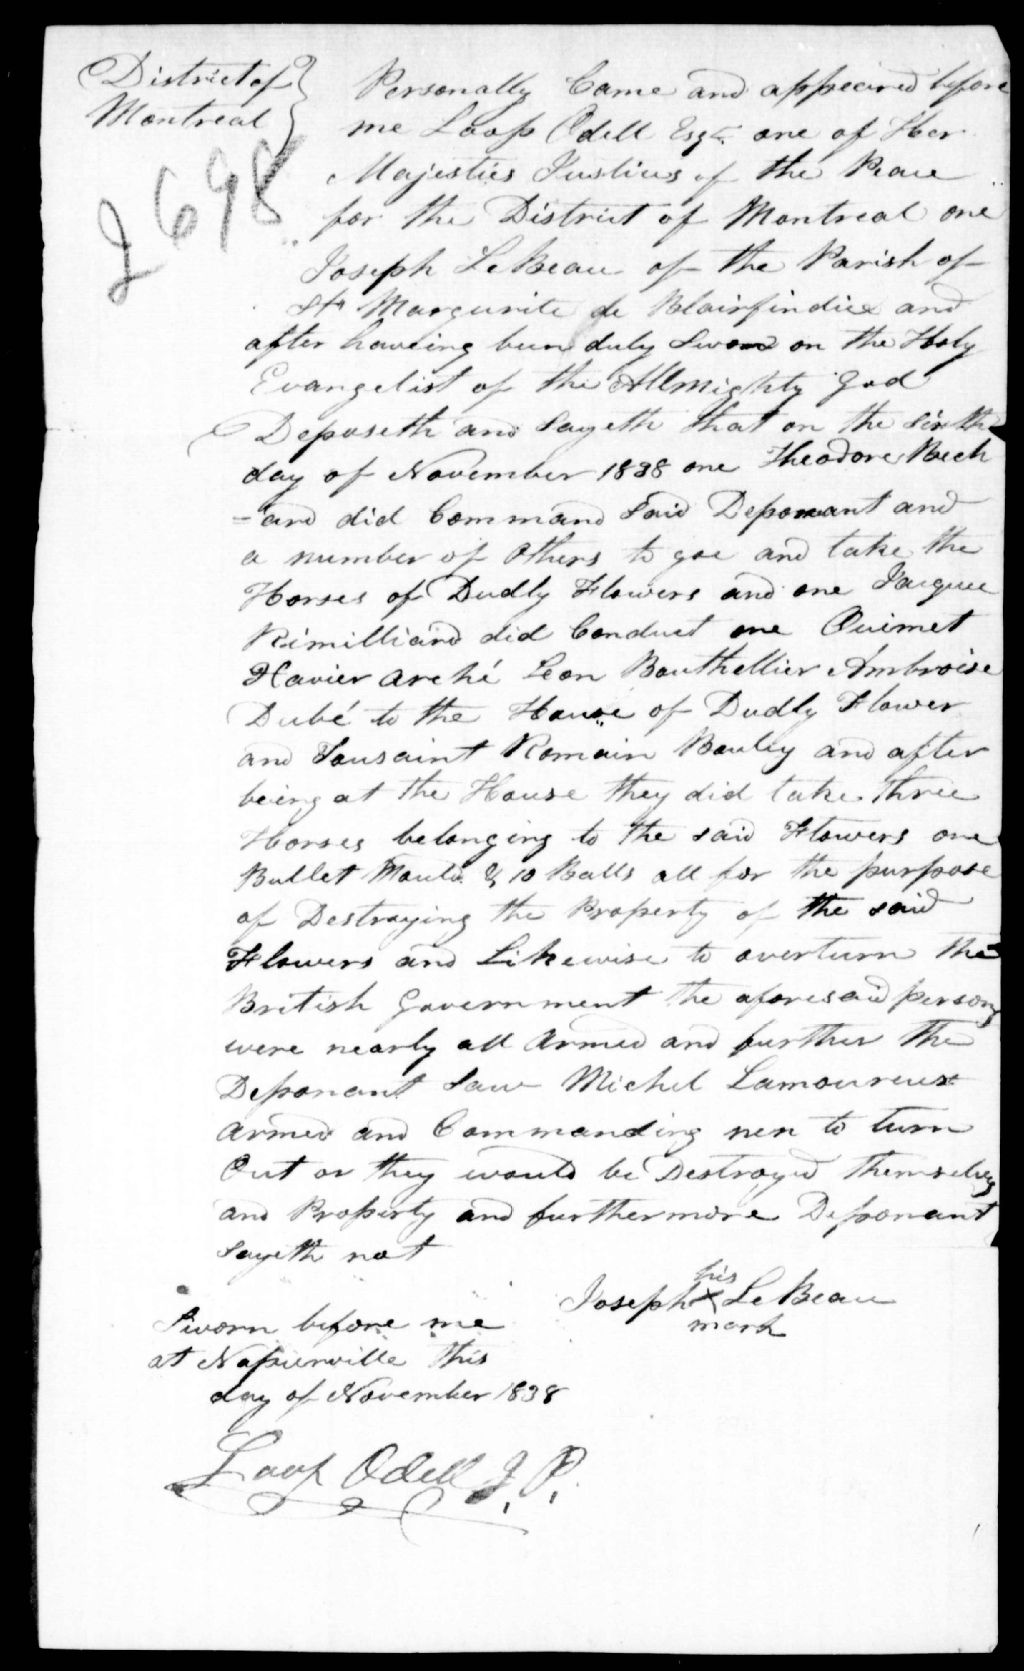 District of
Montreal
J 698
Personally Came and appeared before
me Loop Odell Esqr. one of Her
Majesties Justices of the Peace
for the District of Montreal one
Joseph LeBeau of the Parish of
St Margurite de Blairfindie and
after haveing been duly Sworn on the Holy
Evangelist of the Allmighty God
Deposeth and Sayeth that on the Sixth
day of November 1838 one Theodore Bech
-ard did Command Said Deponant and
a number of Others to goe and take the
Horses of Dudly Flowers and one Jacque
Rimilliard did Conduct one Ouimet
Xavier arché Leon Bouthellier Ambroise
Dubé to the House of Dudly Flower
and Tousaint Romain Bouley and after
being at the House they did take three
Horses belonging to the said Flowers one
Bullet Mould & 10 Balls all for the purpose
of Destroying the Property of the said
Flowers and Likewise to overturn the
British Government the aforesaid persons
were nearly all Armed and further the
Deponant Saw Michel Lamoureux
armed and Commanding men to turn
Out or they would be Destroyed themselves
and Property and furthermore Deponant
Sayeth not
his
Joseph X LeBeau
mark
Sworn before me
at Napierville this
day of November 1838
Loop Odell J. P.